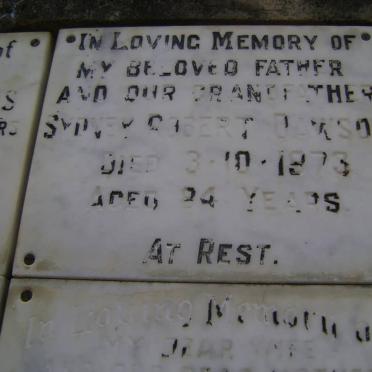 IN LOVING MEMORY OF
MY BELOVED FATHER
AND OUR GRANDFATHER
SYDNEY ROBERT DAWSO
DIED 3-10-1973
AGED 94 YEARS
AT REST.
In Loving Memory o
MY DEAR WIFE